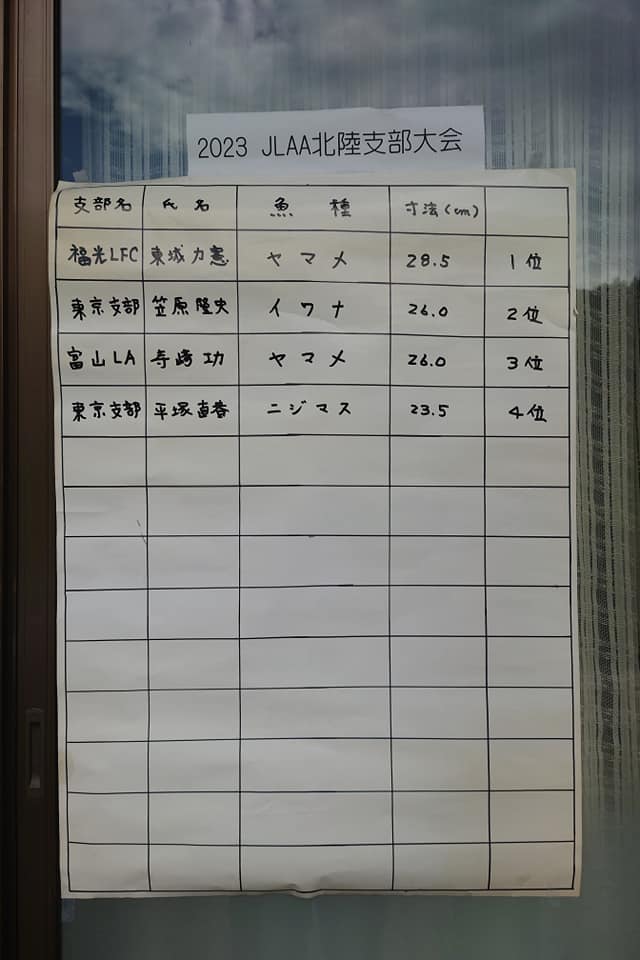 2023 JLAA北陸支部大会
支部名 氏名 魚種 寸法(cm)
福光LFC 東城力憲 ヤマメ 28.5 1位
東京支部 笠原隆史 イワナ 26.0 2位
富山LA 寺崎功 ヤマメ 26.0 3位
東京支部 平塚直春 ニジマス 23.5 4位